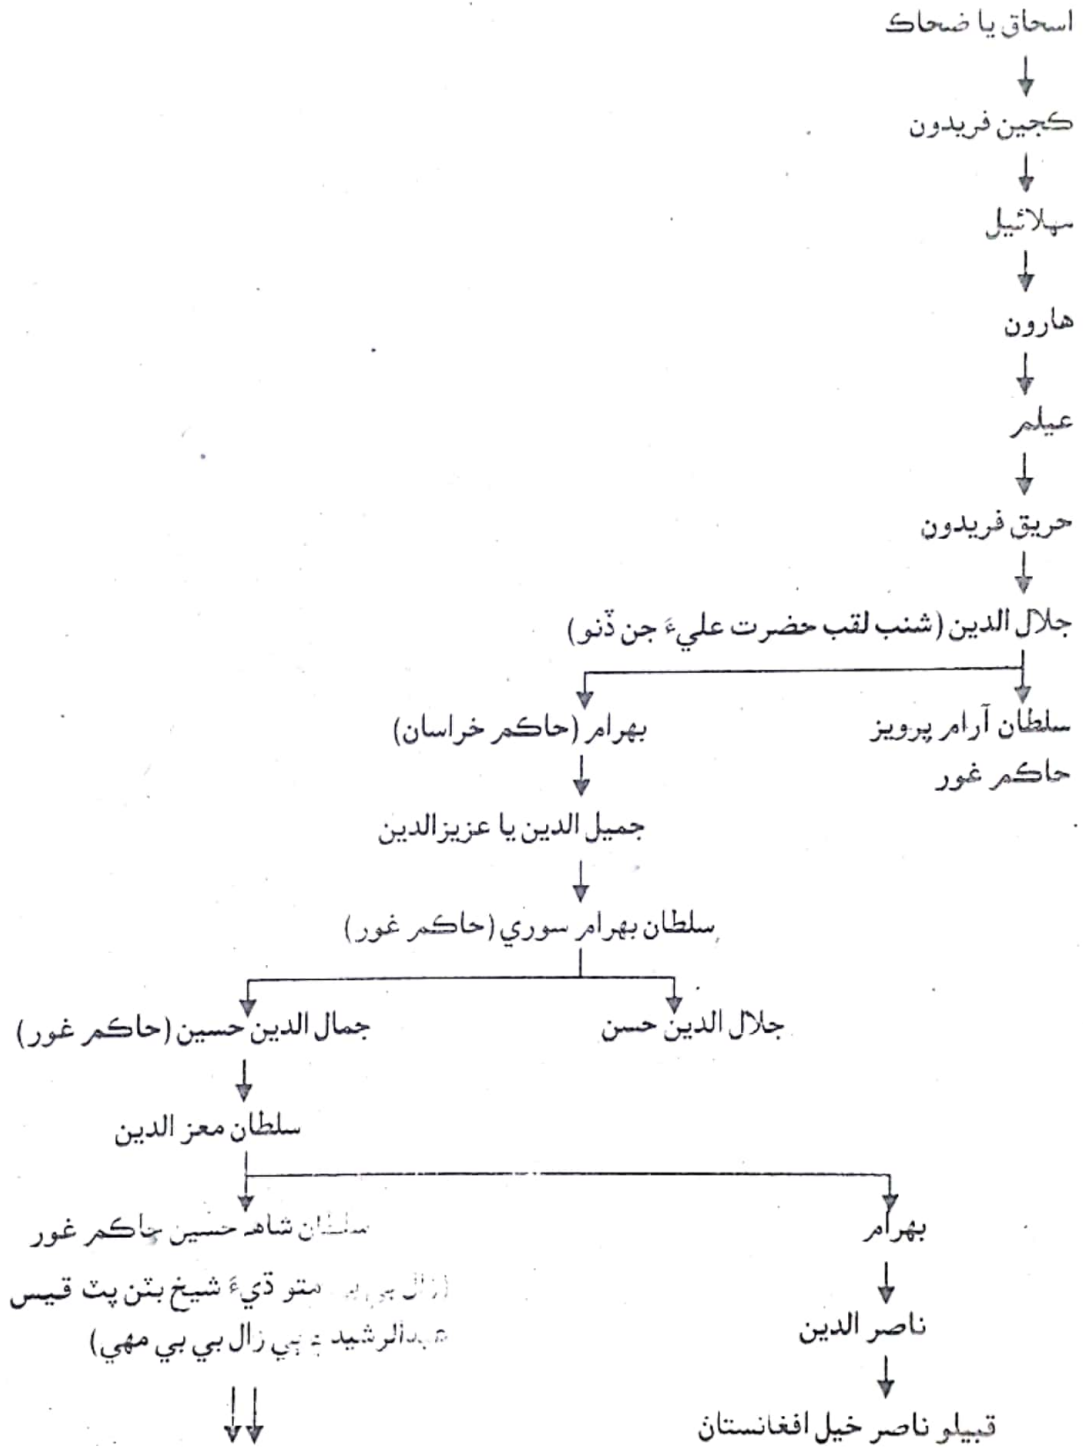 اسحاق يا ضحاڪ
ڪجين فريدون
سهلائيل
هارون
عيلم
حريق فريدون
جلال الدين (شنب لقب حضرت عليءَ جن ڏنو)
سلطان آرام پرويز
حاڪم غور
بهرام (حاڪم خراسان)
جميل الدين يا عزيزالدين
سلطان بهرام سوري (حاڪم غور)
جلال الدين حسن
جمال الدين حسين (حاڪم غور)
سلطان معز الدين
بهرام
ناصر الدين
قبيلو ناصر خيل افغانستان
سلطان شاهه حسين حاڪم غور
(زال بي بي متو ڌيءَ شيخ بٽن پٽ قيس
عبدالرشيد ۽ ٻي زال بي بي مهي)